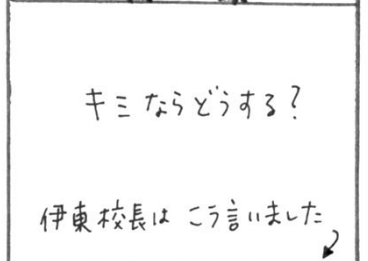 キミならどうする?
伊東校長は こう言いました